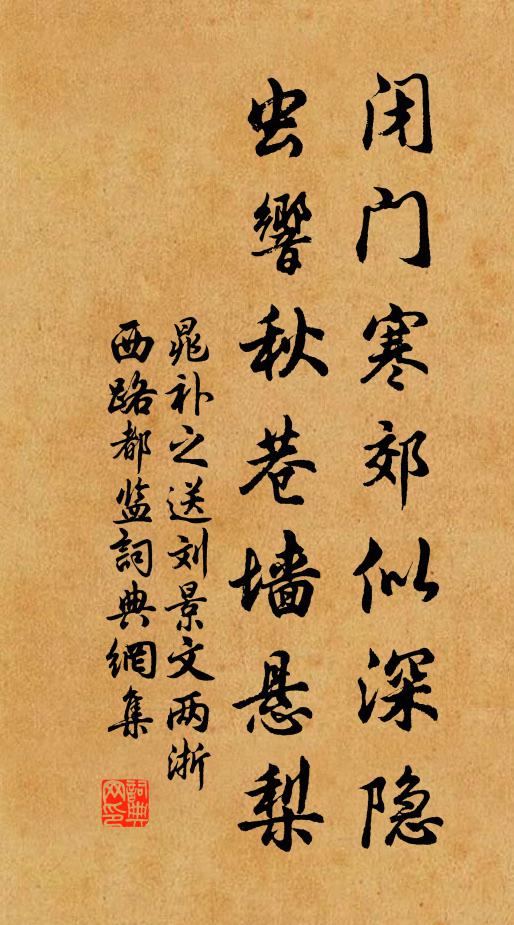 闭门寒郊似深隐
虫響秋巷墙悬梨
晁补之送刘景文两浙
西路都监詞典網集
詞典
网印